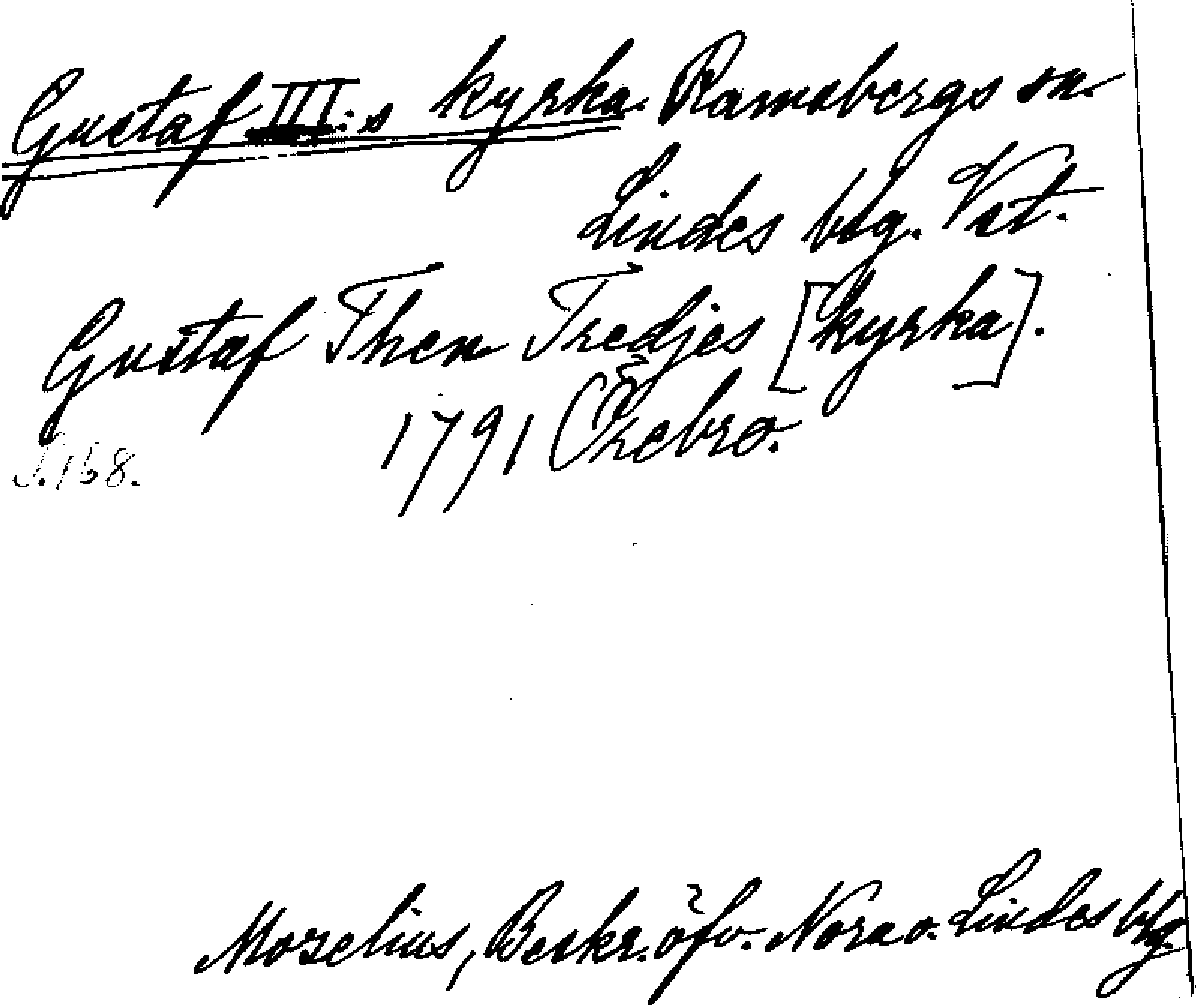 Gustaf III:s kyrka. Ramsbergs sn.
Lindes bsg. Vst.
Gustaf Then Tredjes [kyrka].
1791 Örebro.
S. 168.
Moselius, Beskr. öfv. Nora o. Lindes bsg.